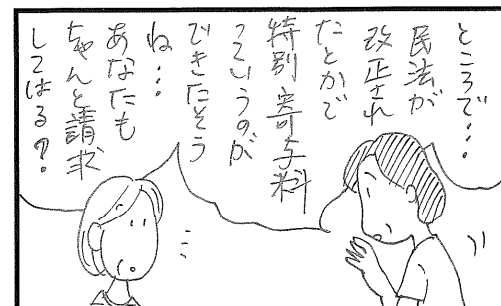 ところで…
民法が
改正され
たとかで
特別寄与料
っていうのが
できたそう
ね…
あなたも
ちゃんと請求
してはる？